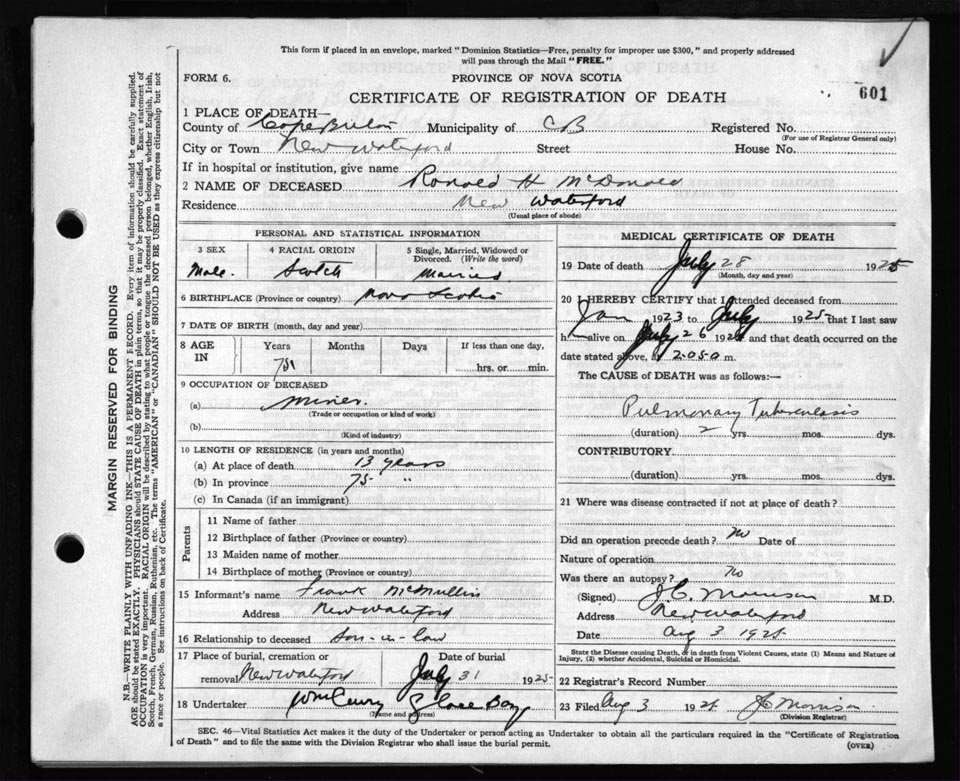 This form if placed in an envelope, marked "Dominion Statistics—Free, penalty for improper use $300," and properly addressed
will pass through the Mail "FREE."
FORM 6.
PROVINCE OF NOVA SCOTIA
CERTIFICATE OF REGISTRATION OF DEATH
601
1 PLACE OF DEATH—
County of Cape Breton Municipality of C B Registered No.
(For use of Registrar General only)
City or Town New Waterford Street House No.
If in hospital or institution, give name
2 NAME OF DECEASED Ronald H McDonald
Residence New Waterford
(Usual place of abode)
PERSONAL AND STATISTICAL INFORMATION
3 SEX 4 RACIAL ORIGIN 5 Single, Married, Widowed or
Divorced. (Write the word)
Male. Scotch Married
6 BIRTHPLACE (Province or country) Nova Scotia
7 DATE OF BIRTH (month, day and year)
8 AGE
IN
Years Months Days If less than one day,
hrs. or min.
75
9 OCCUPATION OF DECEASED
(a) Miner.
(Trade or occupation or kind of work)
(b)
(Kind of industry)
10 LENGTH OF RESIDENCE (in years and months)
(a) At place of death 13 years
(b) In province 75 "
(c) In Canada (if an immigrant)
Parents
11 Name of father
12 Birthplace of father (Province or country)
13 Maiden name of mother
14 Birthplace of mother (Province or country)
15 Informant's name Frank McMullin
Address New Waterford
16 Relationship to deceased Son-in-law
17 Place of burial, cremation or Date of burial
removal New Waterford July 31 1925
18 Undertaker Glace Bay
(Name and address)
MEDICAL CERTIFICATE OF DEATH
19 Date of death July 28 1925
(Month, day and year)
20 I HEREBY CERTIFY that I attended deceased from
Jan 1923 to July 1925 that I last saw
h alive on July 26 192 and that death occurred on the
date stated above, 2.05 a m.
The CAUSE of DEATH was as follows:—
Pulmonary Tuberculosis
(duration) 2 yrs. mos. dys.
CONTRIBUTORY
(duration) yrs. mos. dys.
21 Where was disease contracted if not at place of death?
Did an operation precede death? No Date of
Nature of operation
Was there an autopsy? No
(Signed) J.C. Morrison M.D.
Address New Waterford
Date Aug 3 1925
State the Disease causing Death, or in death from Violent Causes, state (1) Means and Nature of
Injury, (2) whether Accidental, Suicidal or Homicidal.
22 Registrar's Record Number
23 Filed Aug 3 1925 J C Morrison
(Division Registrar)
SEC. 46—Vital Statistics Act makes it the duty of the Undertaker or person acting as Undertaker to obtain all the particulars required in the "Certificate of Registration
of Death" and to file the same with the Division Registrar who shall issue the burial permit.
(OVER)
MARGIN RESERVED FOR BINDING
N.B.—WRITE PLAINLY WITH UNFADING INK—THIS IS A PERMANENT RECORD. Every item of information should be carefully supplied.
AGE should be stated EXACTLY. PHYSICIANS should STATE CAUSE OF DEATH in plain terms, so that it may be properly classified. Exact statement of
OCCUPATION is very important. RACIAL ORIGIN will be described by stating to what people or tongue the deceased person belonged, whether English, Irish,
Scotch, French, German, Russian, Ruthenian, etc. The terms "AMERICAN" or "CANADIAN" SHOULD NOT BE USED as they express citizenship but not
a race or people. See instructions on back of Certificate.